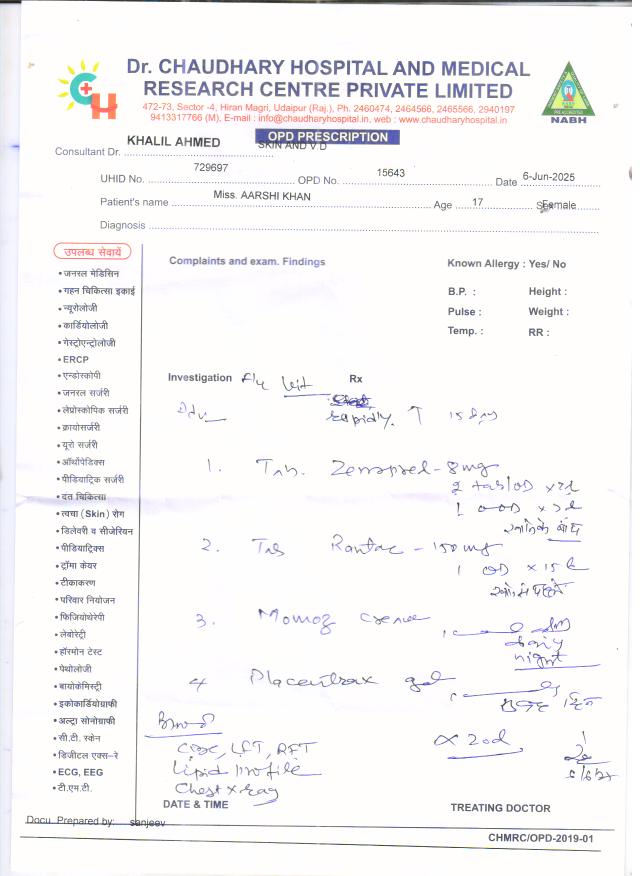 Dr. CHAUDHARY HOSPITAL AND MEDICAL
RESEARCH CENTRE PRIVATE LIMITED
472-73, Sector -4, Hiran Magri, Udaipur (Raj.), Ph. 2460474, 2464566, 2465566, 2940197
9413317766 (M), E-mail : info@chaudharyhospital.in, web : www.chaudharyhospital.in
NABH
OPD PRESCRIPTION
Consultant Dr. KHALIL AHMED SKIN AND V D
UHID No. 729697 OPD No. 15643 Date 6-Jun-2025
Patient's name Miss. AARSHI KHAN Age 17 Sex Female
Diagnosis
उपलब्ध सेवायें
• जनरल मेडिसिन
• गहन चिकित्सा इकाई
• न्यूरोलॉजी
• कार्डियोलॉजी
• गेस्ट्रोएन्ट्रोलॉजी
• ERCP
• एन्डोस्कोपी
• जनरल सर्जरी
• लेप्रोस्कोपिक सर्जरी
• क्रायोसर्जरी
• यूरो सर्जरी
• ऑर्थोपेडिक्स
• पीडियाट्रिक सर्जरी
• दंत चिकित्सा
• त्वचा (Skin) रोग
• डिलेवरी व सीजेरियन
• पीडियाट्रिक्स
• ट्रॉमा केयर
• टीकाकरण
• परिवार नियोजन
• फिजियोथेरेपी
• लेबोरेट्री
• हॉरमोन टेस्ट
• पेथोलॉजी
• बायोकेमिस्ट्री
• इकोकार्डियोग्राफी
• अल्ट्रा सोनोग्राफी
• सी.टी. स्केन
• डिजीटल एक्स-रे
• ECG, EEG
• टी.एम.टी.
Complaints and exam. Findings
Known Allergy : Yes/ No
B.P. : Height :
Pulse : Weight :
Temp. : RR :
Investigation Rx
rapidly ↑ 15 day
1. Tab. - 8mg
1 OD
2. Tab Rantac - 150 mg
1 OD x 15
3. Momoz cream
daily
night
4 Placentrax gel
CBC, LFT, RFT
Lipid profile
Chest x ray
x 20d
DATE & TIME
TREATING DOCTOR
Docu. Prepared by: sanjeev
CHMRC/OPD-2019-01